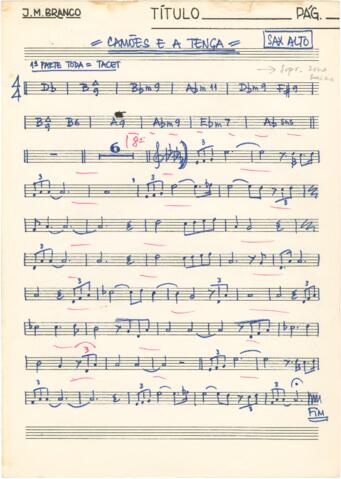 J.M.BRANCO TÍTULO PÁG.
= CAMÕES E A TENÇA = SAX ALTO
1ª PARTE TODA = TACET
4/4 Db | B 6/9 | Bbm9 | Abm11 | Dbm9 F#9
B 6/9 B6 | A9 | Abm9 | Ebm7 | Ab sus
6
3 3
3 3 3
3
3
3
3
3 3 3
FIM